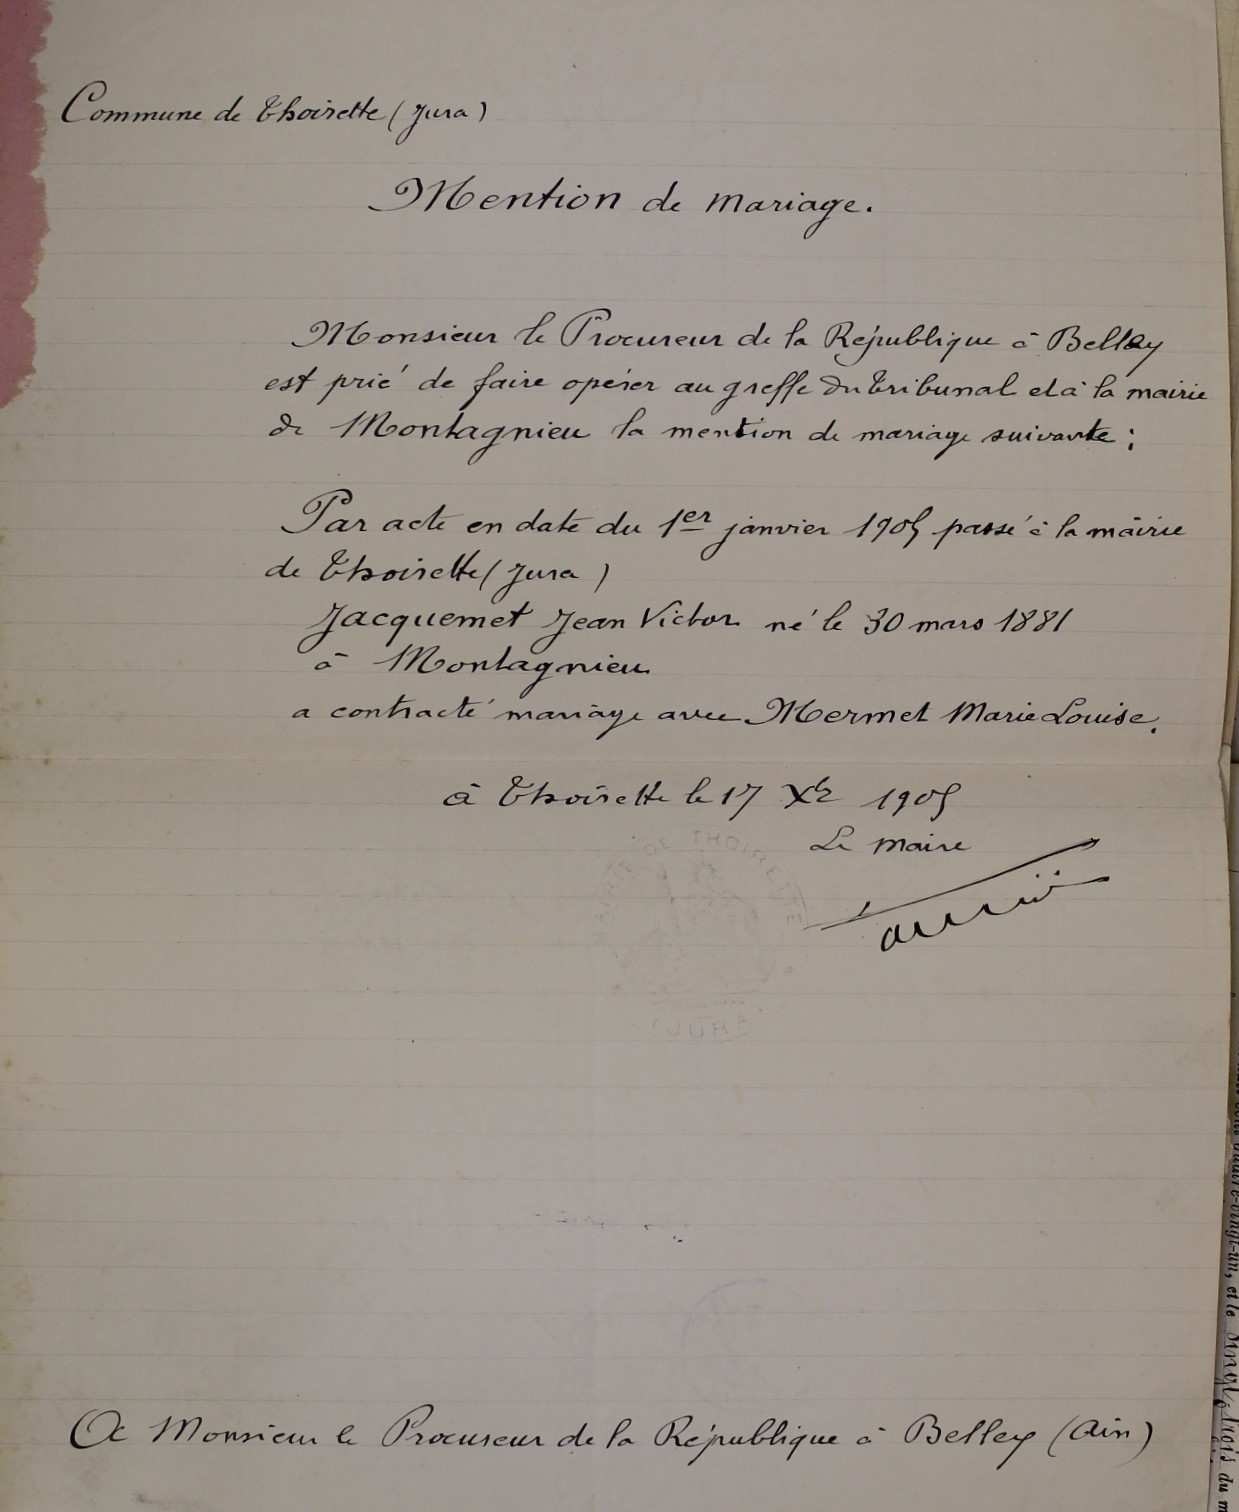 Commune de Thoirette (Jura)
Mention de mariage.
Monsieur le Procureur de la République à Belley
est prié de faire opérer au greffe du tribunal et à la mairie
de Montagnieu la mention de mariage suivante :
Par acte en date du 1er janvier 1905 passé à la mairie
de Thoirette (Jura)
Jacquemet Jean Victor né le 30 mars 1881
à Montagnieu
a contracté mariage avec Mermet Marie Louise.
à Thoirette le 17 Xbre 1905
Le Maire
MAIRIE DE THOIRETTE
JURA
A Monsieur le Procureur de la République à Belley (Ain)